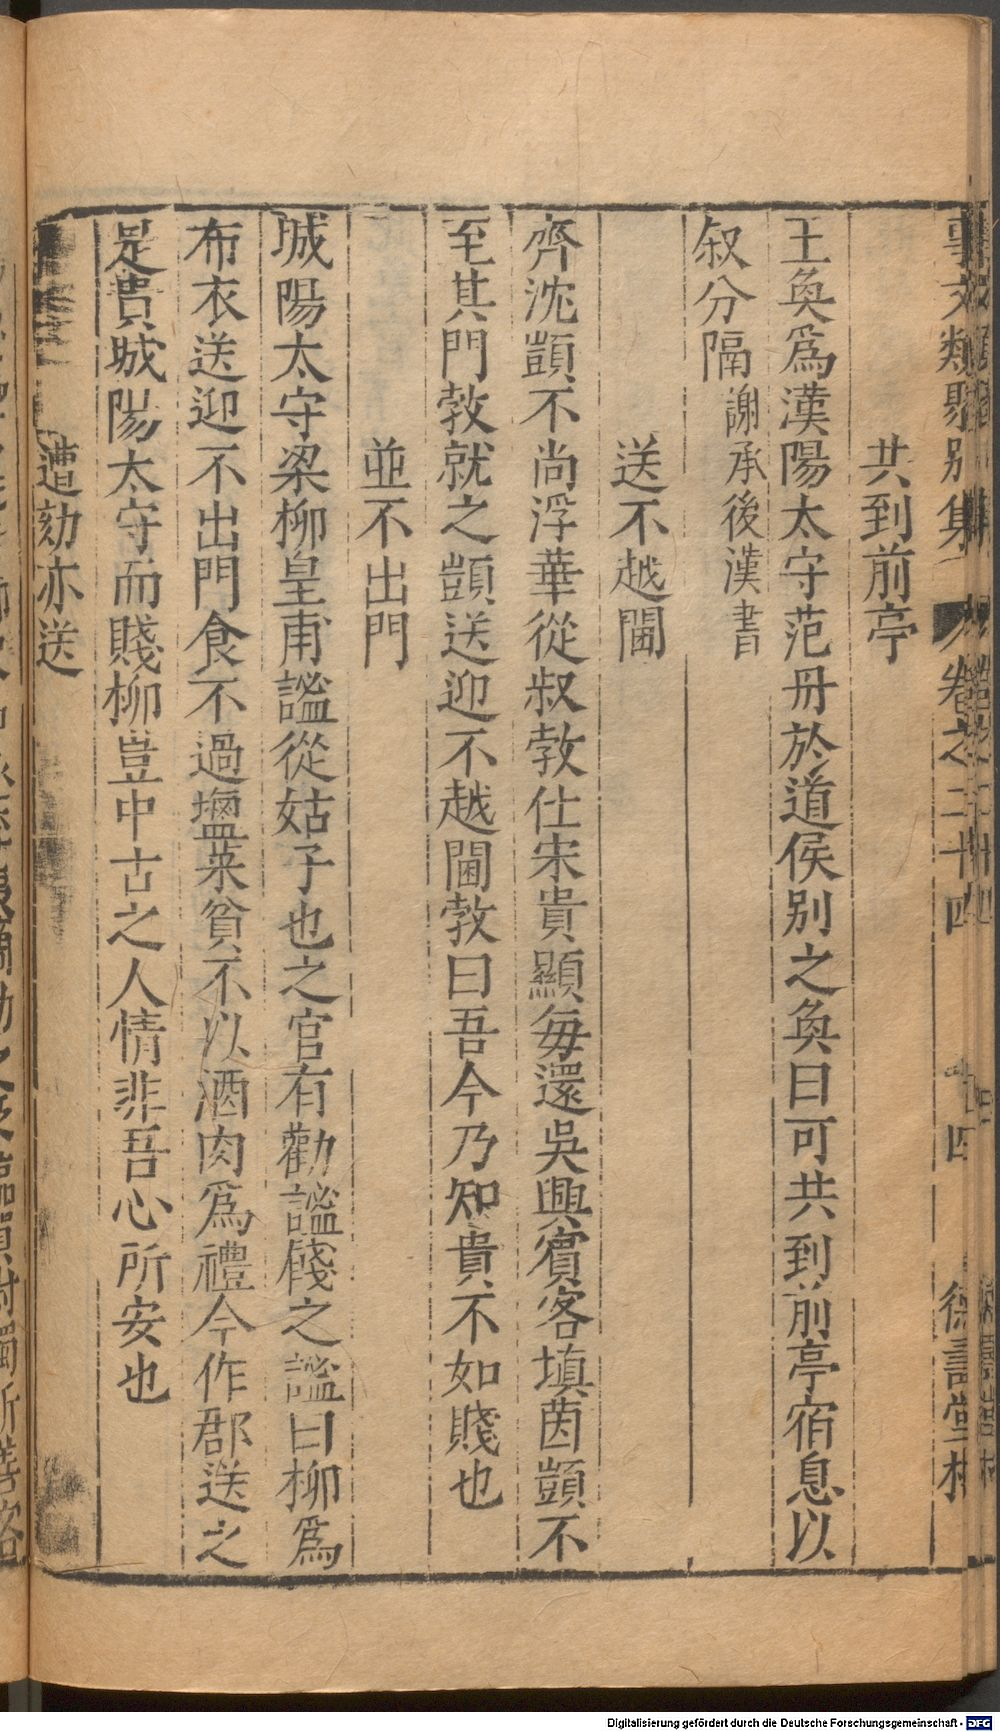 事文類聚别集 卷之二十四 十四 徐壽堂材
共到前亭
王奐爲漢陽太守范冊於道侯别之奐曰可共到前亭宿息以
叙分隔謝承後漢書
送不越閫
齊沈顗不尚浮華從叔敦仕宋貴顯每還吳興賓客填茵顗不
至其門敦就之顗送迎不越閫敦曰吾今乃知貴不如賤也
並不出門
城陽太守梁柳皇甫謐從姑子也之官有勸謐餞之謐曰柳爲
布衣送迎不出門食不過鹽菜貧不以酒肉爲禮今作郡送之
是貴城陽太守而賤柳豈中古之人情非吾心所安也
遭劾亦送
Digitalisierung gefördert durch die Deutsche Forschungsgemeinschaft - DFG